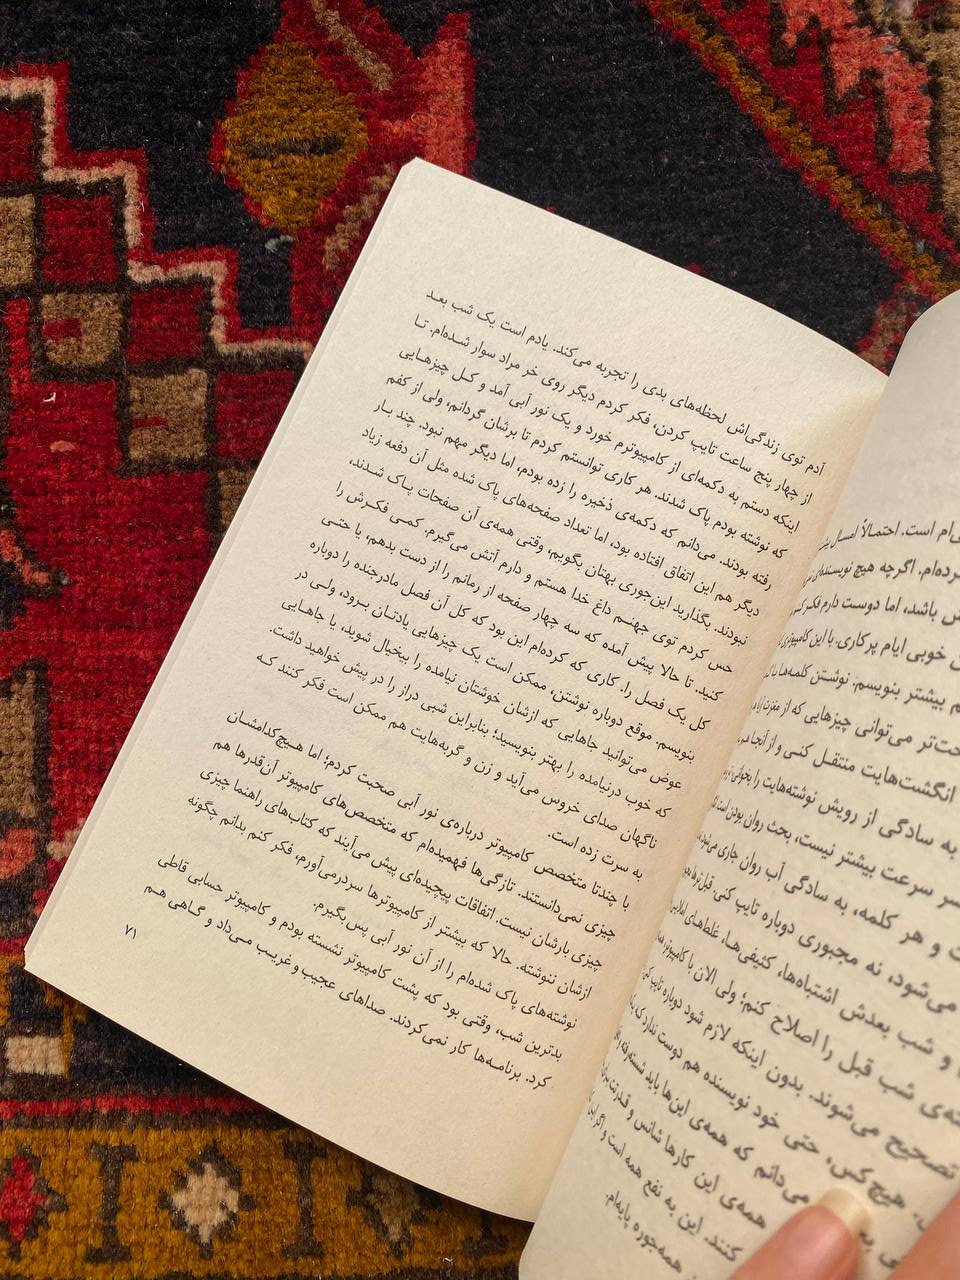 ی‌ام است. احتمالاً امسال
رده‌ام. اگرچه هیچ نویسنده‌ای
ش باشد، اما دوست دارم فکر
خوبی ایام پرکاری. با این کامپیوتری
م بیشتر بنویسم. نوشتن کلمه‌ها با
حت‌تر می‌توانی چیزهایی که از مغزت
انگشت‌هایت منتقل کنی و از آنجا
به سادگی از رویش نوشته‌هایت را بخوانی
سر سرعت بیشتر نیست، بحث روان بودن است
و هر کلمه، به سادگی آب روان جاری می‌شود
می‌شود، نه مجبوری دوباره تایپ کنی. قبل‌ترها
و شب بعدش اشتباه‌ها، کثیفی‌ها، غلط‌های املایی
ته‌ی شب قبل را اصلاح کنم؛ ولی الان با کامپیوتر،
تصحیح می‌شوند. بدون اینکه لازم شود دوباره تایپ
هیچ‌کس، حتی خود نویسنده هم دوست ندارد که
می‌دانم که همه‌ی این‌ها باید شسته‌رفته
همه‌ی این کارها شانس و قدرت
کنند. این به نفع همه است و اگر این
همه‌جوره پایه‌ام.
آدم توی زندگی‌اش لحظه‌های بدی را تجربه می‌کند. یادم است یک شب بعد
از چهار پنج ساعت تایپ کردن، فکر کردم دیگر روی خر مراد سوار شده‌ام. تا
اینکه دستم به دکمه‌ای از کامپیوترم خورد و یک نور آبی آمد و کل چیزهایی
که نوشته بودم پاک شدند. هر کاری توانستم کردم تا برشان گردانم، ولی از کفم
رفته بودند. می‌دانم که دکمه‌ی ذخیره را زده بودم، اما دیگر مهم نبود. چند بار
دیگر هم این اتفاق افتاده بود، اما تعداد صفحه‌های پاک شده مثل آن دفعه زیاد
نبودند. بگذارید این‌جوری بهتان بگویم، وقتی همه‌ی آن صفحات پاک شدند،
حس کردم توی جهنم داغ خدا هستم و دارم آتش می‌گیرم. کمی فکرش را
کنید. تا حالا پیش آمده که سه چهار صفحه از رمانم را از دست بدهم، یا حتی
کل یک فصل را. کاری که کرده‌ام این بود که کل آن فصل مادرجنده را دوباره
بنویسم. موقع دوباره نوشتن، ممکن است یک چیزهایی یادتان برود، ولی در
عوض می‌توانید جاهایی که ازشان خوشتان نیامده را بیخیال شوید، یا جاهایی
که خوب درنیامده را بهتر بنویسید؛ بنابراین شبی دراز را در پیش خواهید داشت.
ناگهان صدای خروس می‌آید و زن و گربه‌هایت هم ممکن است فکر کنند که
به سرت زده است.
با چندتا متخصص کامپیوتر درباره‌ی نور آبی صحبت کردم؛ اما هیچ‌کدامشان
چیزی نمی‌دانستند. تازگی‌ها فهمیده‌ام که متخصص‌های کامپیوتر آن‌قدرها هم
چیزی بارشان نیست. اتفاقات پیچیده‌ای پیش می‌آیند که کتاب‌های راهنما چیزی
ازشان ننوشته. حالا که بیشتر از کامپیوترها سردرمی‌آورم؛ فکر کنم بدانم چگونه
نوشته‌های پاک شده‌ام را از آن نور آبی پس بگیرم.
بدترین شب، وقتی بود که پشت کامپیوتر نشسته بودم و کامپیوتر حسابی قاطی
کرد. برنامه‌ها کار نمی‌کردند. صداهای عجیب و غریب می‌داد و گاهی هم
۷۱